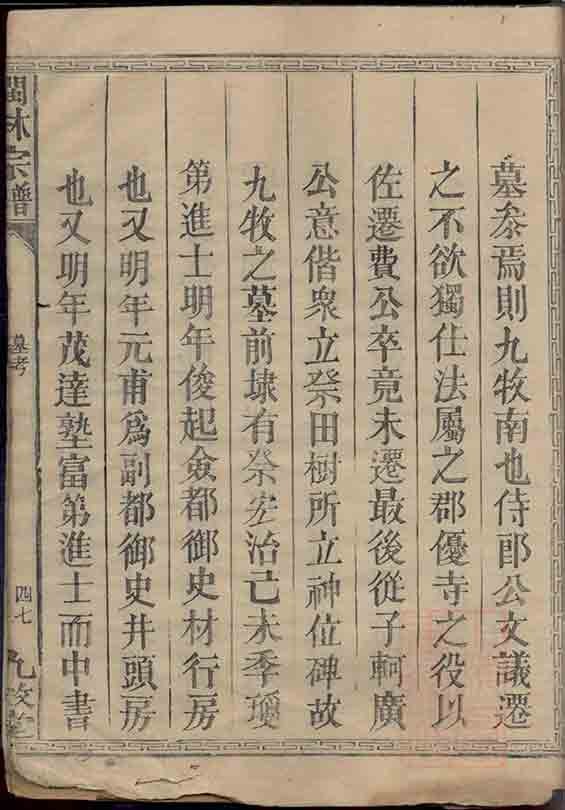 墓叅焉則九牧南也侍郎公文議遷
之不欲獨仕法屬之郡優寺之役以
佐遷費公卒竟未遷最後從子軻廣
公意偕衆立祭田樹所立神位碑故
九牧之墓前埭有祭宏治己未季瓊
第進士明年俊起僉都御史材行房
也又明年元甫爲副都御史井頭房
也又明年茂達塾富第進士而中書
閩林宗譜
墓考
四七
九牧堂